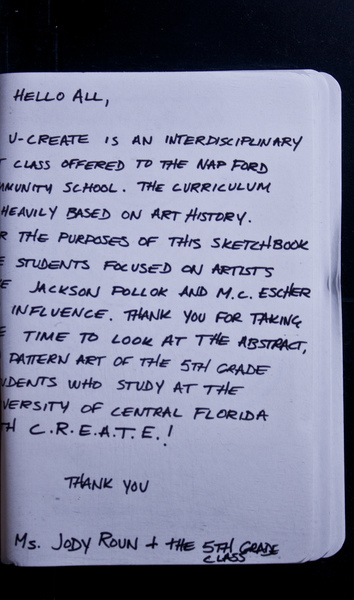 HELLO ALL,
U-CREATE IS AN INTERDISCIPLINARY
CLASS OFFERED TO THE NAP FORD
MMUNITY SCHOOL. THE CURRICULUM
HEAVILY BASED ON ART HISTORY.
R THE PURPOSES OF THIS SKETCHBOOK
E STUDENTS FOCUSED ON ARTISTS
E JACKSON POLLOK AND M.C. ESCHER
INFLUENCE. THANK YOU FOR TAKING
E TIME TO LOOK AT THE ABSTRACT,
PATTERN ART OF THE 5TH GRADE
UDENTS WHO STUDY AT THE
VERSITY OF CENTRAL FLORIDA
TH C.R.E.A.T.E.!
THANK YOU
Ms. JODY ROUN + THE 5TH GRADE
CLASS